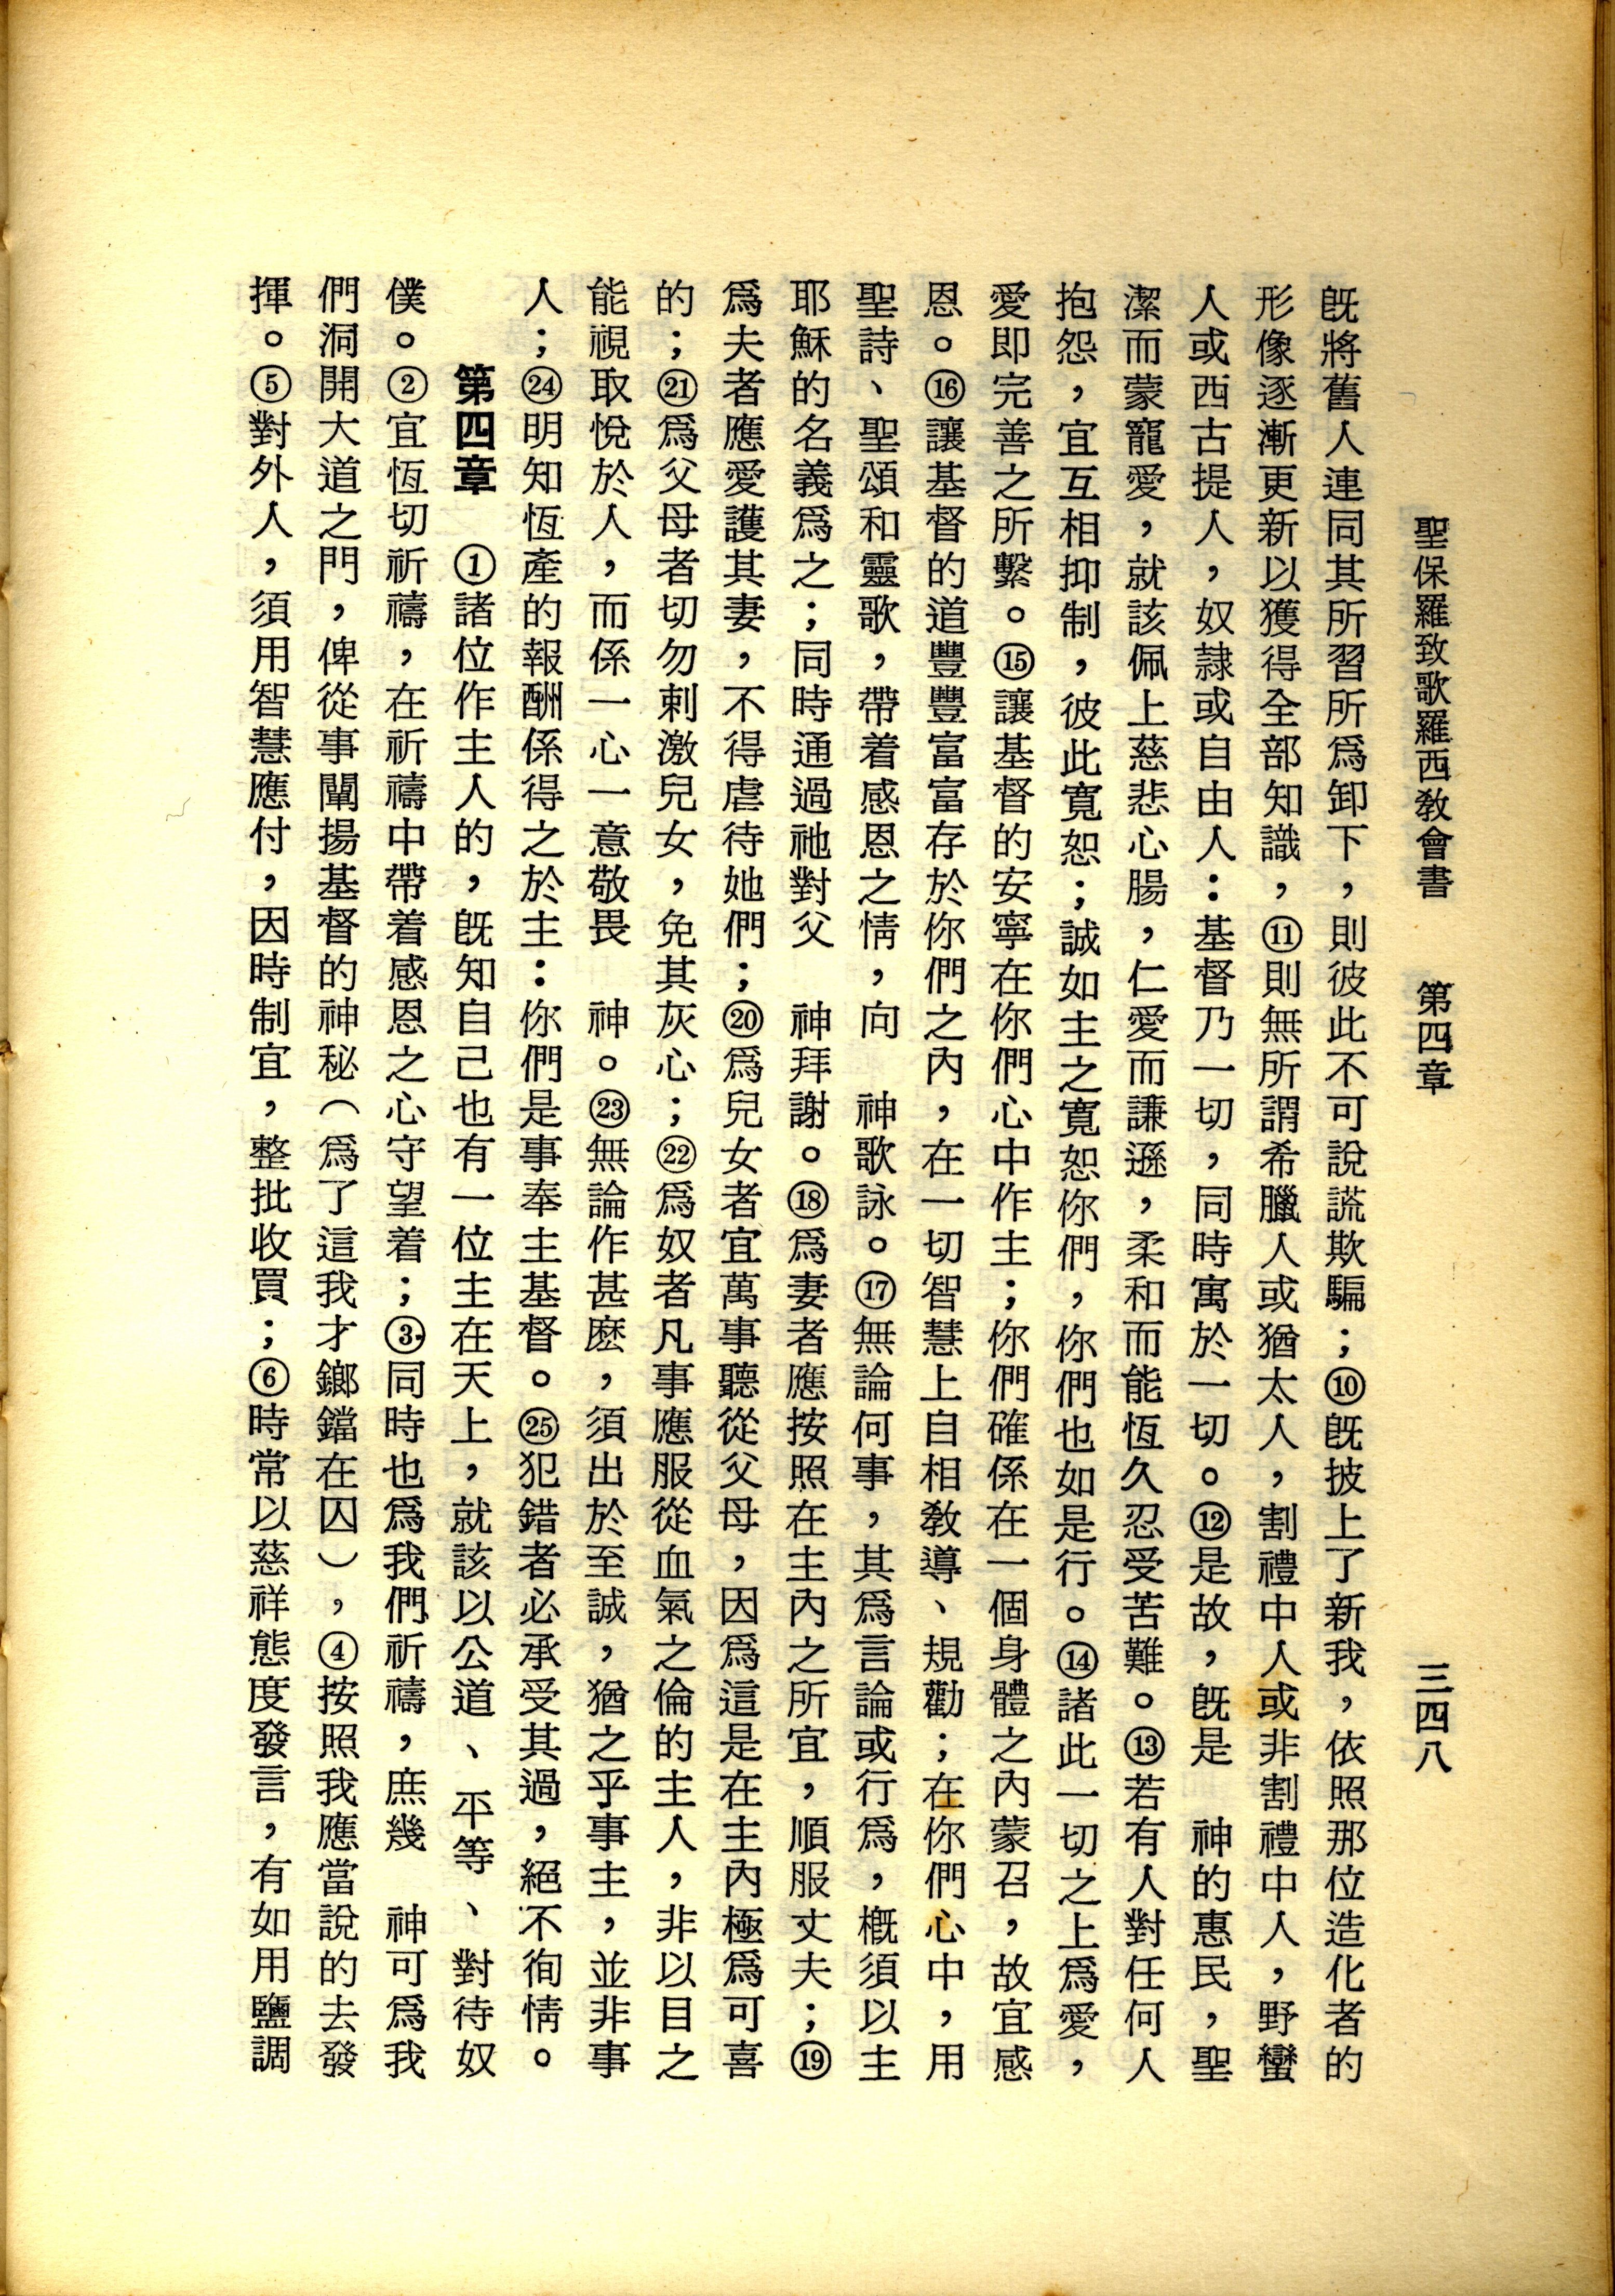 聖保羅致歌羅西教會書　第四章　三四八
旣將舊人連同其所習所爲卸下，則彼此不可說謊欺騙；⑩旣披上了新我，依照那位造化者的
形像逐漸更新以獲得全部知識，⑪則無所謂希臘人或猶太人，割禮中人或非割禮中人，野蠻
人或西古提人，奴隷或自由人：基督乃一切，同時寓於一切。⑫是故，旣是　神的惠民，聖
潔而蒙寵愛，就該佩上慈悲心腸，仁愛而謙遜，柔和而能恆久忍受苦難。⑬若有人對任何人
抱怨，宜互相抑制，彼此寬恕；誠如主之寬恕你們，你們也如是行。⑭諸此一切之上爲愛，
愛即完善之所繫。⑮讓基督的安寧在你們心中作主；你們確係在一個身體之內蒙召，故宜感
恩。⑯讓基督的道豐豐富富存於你們之內，在一切智慧上自相教導、規勸；在你們心中，用
聖詩、聖頌和靈歌，帶着感恩之情，向　神歌詠。⑰無論何事，其爲言論或行爲，槪須以主
耶穌的名義爲之；同時通過祂對父　神拜謝。⑱爲妻者應按照在主內之所宜，順服丈夫；⑲
爲夫者應愛護其妻，不得虐待她們；⑳爲兒女者宜萬事聽從父母，因爲這是在主內極爲可喜
的；㉑爲父母者切勿刺激兒女，免其灰心；㉒爲奴者凡事應服從血氣之倫的主人，非以目之
能視取悅於人，而係一心一意敬畏　神。㉓無論作甚麼，須出於至誠，猶之乎事主，並非事
人；㉔明知恆產的報酬係得之於主：你們是事奉主基督。㉕犯錯者必承受其過，絕不徇情。
第四章　①諸位作主人的，旣知自己也有一位主在天上，就該以公道、平等、對待奴
僕。②宜恆切祈禱，在祈禱中帶着感恩之心守望着；③同時也爲我們祈禱，庶幾　神可爲我
們洞開大道之門，俾從事闡揚基督的神秘（爲了這我才鎯鐺在囚），④按照我應當說的去發
揮。⑤對外人，須用智慧應付，因時制宜，整批收買；⑥時常以慈祥態度發言，有如用鹽調